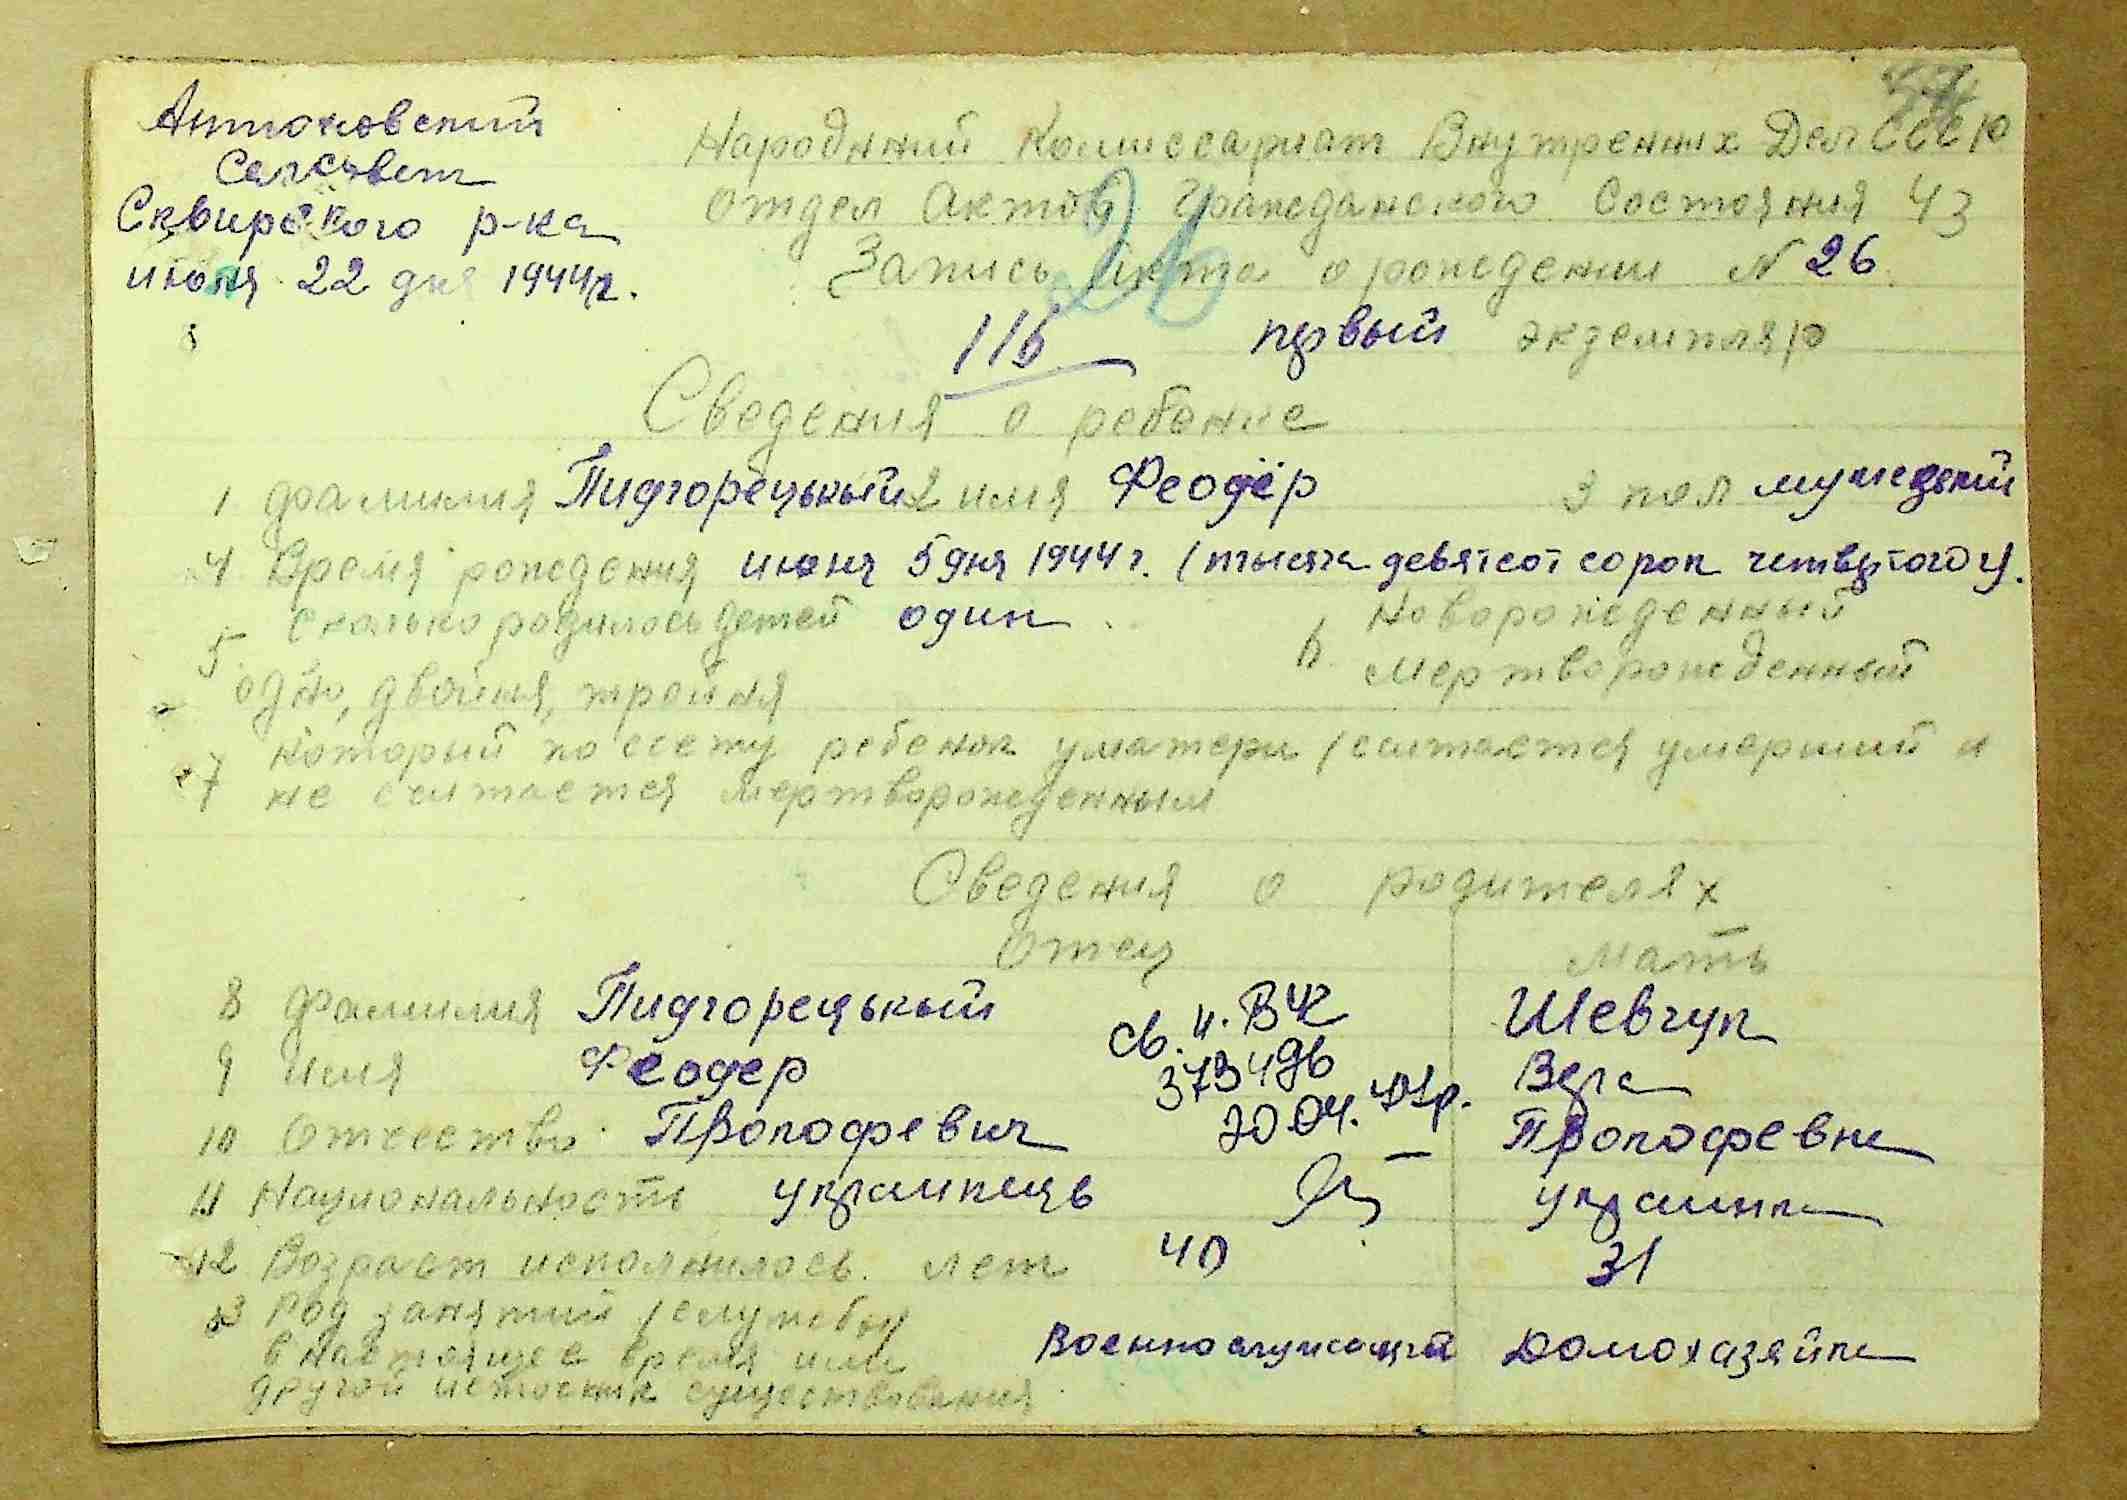 Антоновский
Сельсовет
Сквирского р-ка
июня 22 дня 1944г.
Народнний Комиссариат Внутренних Дел СССР
Отдел Актов Гражданского Состояния 43
Запись Акта о рождении N 26
26
116 первый экземпляр
Сведения о ребенке
1 фамилия Пидгорецький 2 имя Феодёр 3 пол мужеский
4 Время рождения июня 5 дня 1944 г. (тысяча девятсот сорок четвертого г).
5 сколько родилось детей один
одно, двойня, тройня
6 Новорожденный
Мертворожденный
7 который по счету ребенок у матери (считается умерший и
не считается мертворожденным
Сведения о родителях
Отец Мать
8 Фамилия Пидгорецький Шевчук
9 Имя Феодер Вера
св. н. ВЧ
373496
30.04. р.
10 Отчество Прокофевич Прокофевна
11 Национальность украинець украинка
12 Возраст исполнилось лет 40 31
13 Род занятий (службы
в настоящее время или Военнослужащий Домохазяйка
другой источник существования